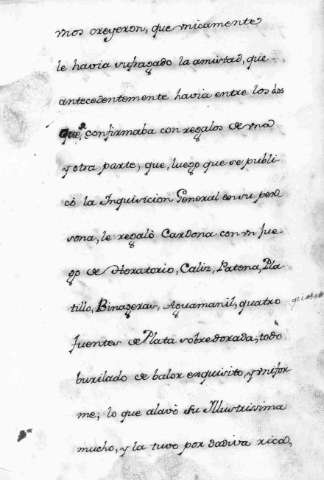 mos creyeron, que unicamente
le havia sufragado la amistad, que
antecedentemente havia entre los dos
que confirmaba con regalos de una
y otra parte, que, luego que se publi-
cò la Inquisicion General en su per-
sona, le regalò Cardona con un Jue-
go de Oratorio, Caliz, Patena, Pla-
tillo, Binageras, Aguamanil, quatro
fuentes de Plata sobredorada, todo
burilado de balor exquisito, y unifor-
me; lo que alavò Su Illustrissima
mucho, y la tuvo por dadiva rica,